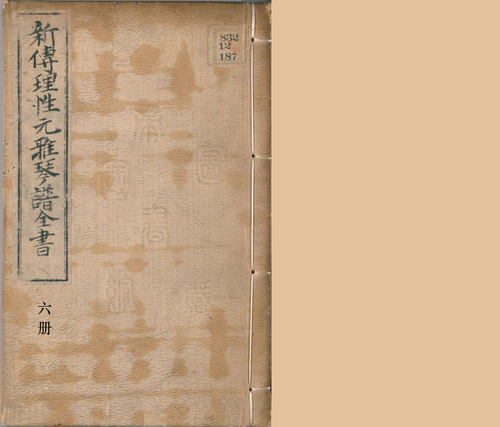 新傳理性元雅琴譜全書
六册
832
12
187